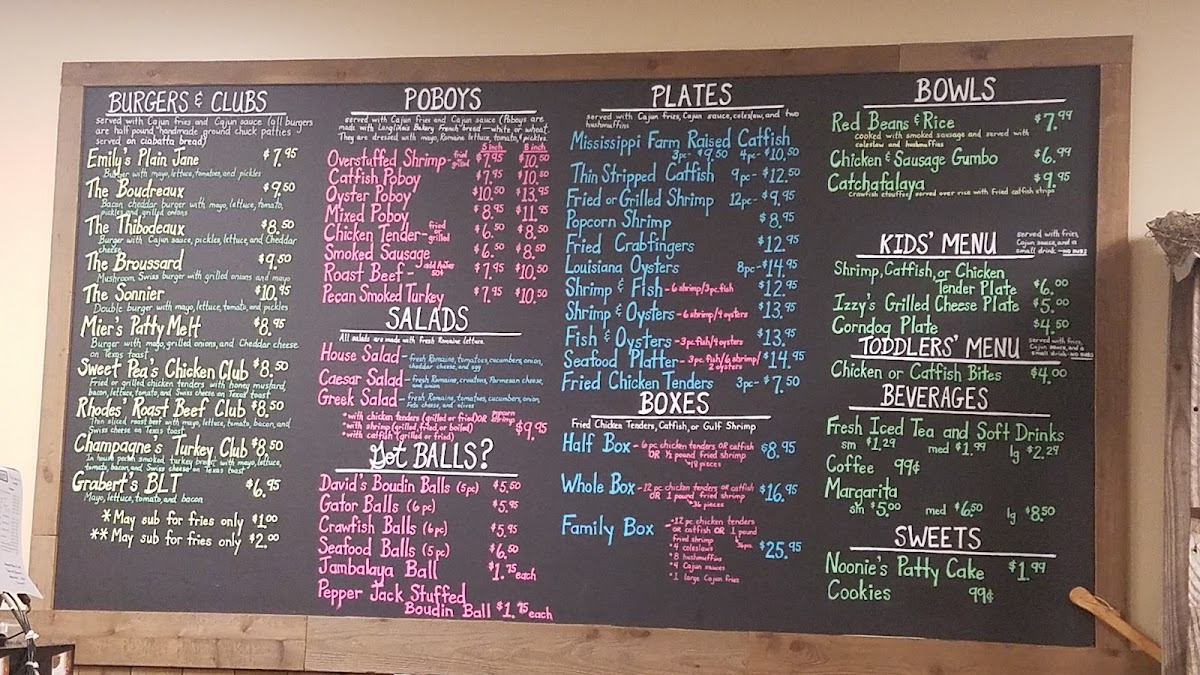 BURGERS & CLUBS
served with Cajun fries and Cajun sauce (all burgers
are half pound handmade ground chuck patties
served on ciabatta bread)
Emily's Plain Jane $7.95
Burger with mayo, lettuce, tomatoes, and pickles
The Boudreaux $9.50
Bacon cheddar burger with mayo, lettuce, tomato,
pickles and grilled onions
The Thibodeaux $8.50
Burger with Cajun sauce, pickles, lettuce, and Cheddar
cheese
The Broussard $9.50
Mushroom Swiss burger with grilled onions and mayo
The Sonnier $10.95
Double burger with mayo, lettuce, tomato, and pickles
Mier's Patty Melt $8.95
Burger with mayo, grilled onions, and Cheddar cheese
on Texas toast
Sweet Pea's Chicken Club $8.50
Fried or grilled chicken tenders with honey mustard,
bacon, lettuce, tomato, and Swiss cheese on Texas toast
Rhodes' Roast Beef Club $8.50
Thin sliced roast beef with mayo, lettuce, tomato, bacon, and
Swiss cheese on Texas toast
Champagne's Turkey Club $8.50
In house pecan smoked turkey breast with mayo, lettuce,
tomato, bacon, and Swiss cheese on Texas toast
Grabert's BLT $6.95
Mayo, lettuce, tomato, and bacon
*May sub for fries only $1.00
**May sub for fries only $2.00
POBOYS
served with Cajun fries and Cajun sauce (Poboys are
made with Langlinais Bakery French bread - white or wheat.
They are dressed with mayo, Romaine lettuce, tomato, pickles.
5 inch 8 inch
Overstuffed Shrimp - fried grilled $7.95 $10.50
Catfish Poboy $7.95 $10.50
Oyster Poboy $10.50 $13.95
Mixed Poboy $8.95 $11.95
Chicken Tender - fried or grilled $6.50 $8.50
Smoked Sausage $6.50 $8.50
Roast Beef - $7.95 $10.50
Pecan Smoked Turkey $7.95 $10.50
SALADS
All salads are made with fresh Romaine lettuce.
House Salad - fresh Romaine, tomatoes, cucumbers, onion,
cheddar cheese, and egg
Caesar Salad - fresh Romaine, croutons, Parmesan cheese,
and onion
Greek Salad - fresh Romaine, tomatoes, cucumbers, onion,
Feta cheese, and olives
*with chicken tenders (grilled or fried) OR popcorn shrimp
*with shrimp (grilled, fried, or boiled) $9.95
*with catfish (grilled or fried)
Got BALLS?
David's Boudin Balls (5pc) $5.50
Gator Balls (6pc) $5.95
Crawfish Balls (6pc) $5.95
Seafood Balls (5pc) $6.50
Jambalaya Ball $1.75 each
Pepper Jack Stuffed
Boudin Ball $1.75 each
PLATES
served with Cajun fries, Cajun sauce, coleslaw, and two
hushmuffins
Mississippi Farm Raised Catfish
3pc- $9.50 4pc- $10.50
Thin Stripped Catfish 9pc- $12.50
Fried or Grilled Shrimp 12pc- $9.95
Popcorn Shrimp $8.95
Fried Crabfingers $12.95
Louisiana Oysters 8pc- $14.95
Shrimp & Fish - 6 shrimp/3pc. fish $12.95
Shrimp & Oysters - 6 shrimp/4 oysters $13.95
Fish & Oysters - 3pc. fish/4 oysters $13.95
Seafood Platter - 3pc. fish/6 shrimp/ $14.95
2 oysters
Fried Chicken Tenders 3pc- $7.50
BOXES
Fried Chicken Tenders, Catfish, or Gulf Shrimp
Half Box - 6 pc chicken tenders OR catfish $8.95
OR ½ pound fried shrimp
*18 pieces
Whole Box - 12 pc chicken tenders or catfish $16.95
OR 1 pound fried shrimp
*36 pieces
Family Box - 12 pc chicken tenders
or catfish OR 1 pound
fried shrimp 36pc. $25.95
*4 coleslaws
*8 hushmuffins
*4 Cajun sauces
*1 large Cajun fries
BOWLS
Red Beans & Rice $7.99
cooked with smoked sausage and served with
coleslaw and hushmuffins
Chicken & Sausage Gumbo $6.99
Catchafalaya $9.95
crawfish etouffee served over rice with fried catfish strips
KIDS' MENU served with fries,
Cajun sauce, and a
small drink - NO SUBS
Shrimp, Catfish, or Chicken
Tender Plate $6.00
Izzy's Grilled Cheese Plate $5.00
Corndog Plate $4.50
TODDLERS' MENU served with fries,
Cajun sauce, and a
small drink - NO SUBS
Chicken or Catfish Bites $4.00
BEVERAGES
Fresh Iced Tea and Soft Drinks
sm $1.29 med $1.99 lg $2.29
Coffee 99¢
Margarita
sm $5.00 med $6.50 lg $8.50
SWEETS
Noonie's Patty Cake $1.99
Cookies 99¢